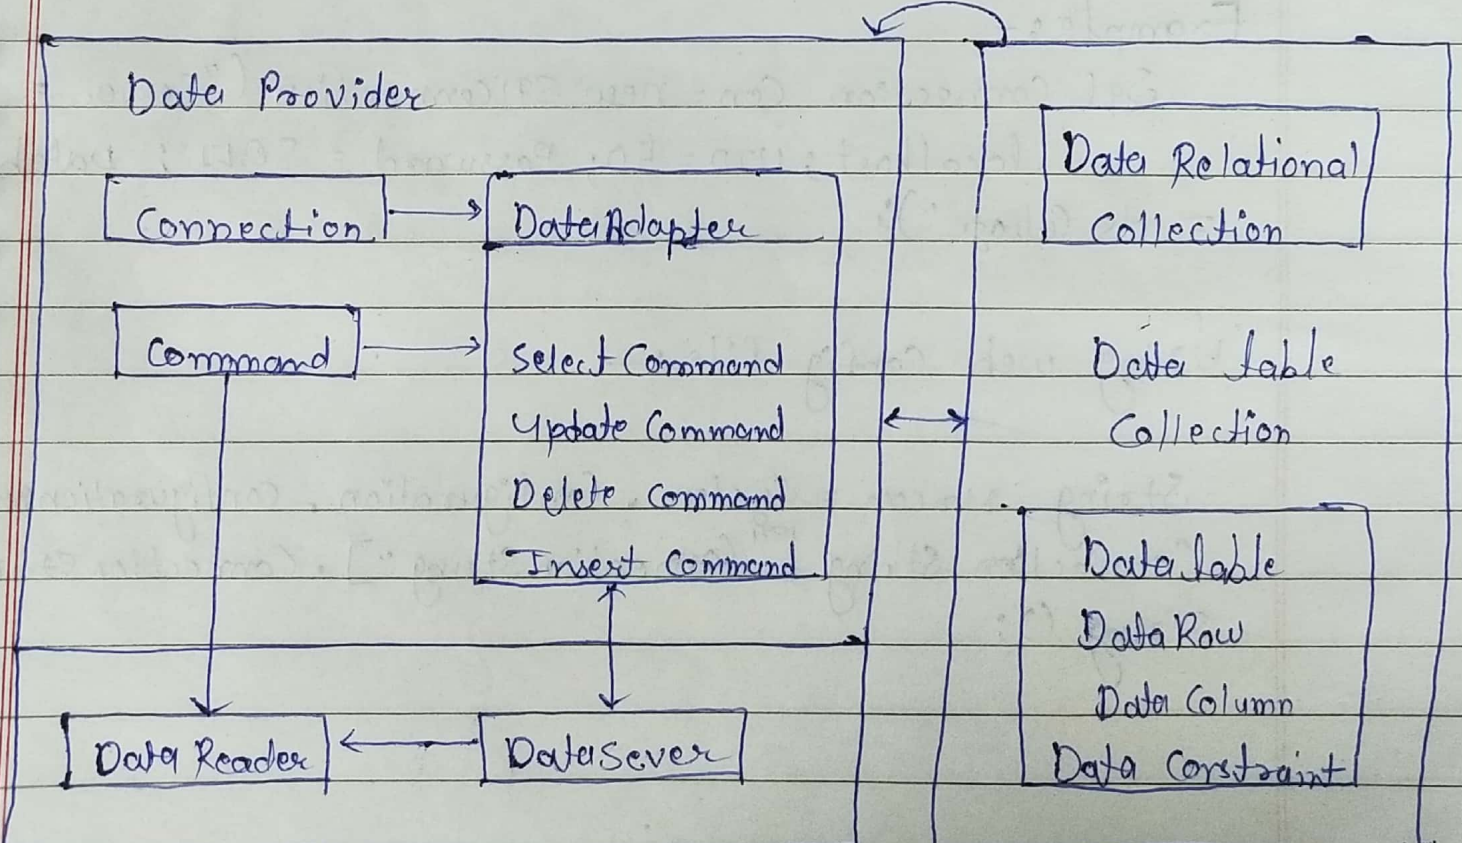 Data Provider
Connection
DataAdapter
Command
Select Command
Update Command
Delete Command
Insert Command
Data Reader
DataSever
Data Relational
Collection
Data table
Collection
Data table
Data Row
Data Column
Data Constraint